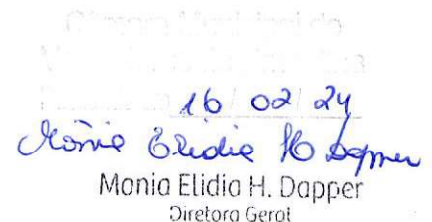 16 02 24
Mônia Elidia H Dapper
Monia Elidia H. Dapper
Diretora Geral